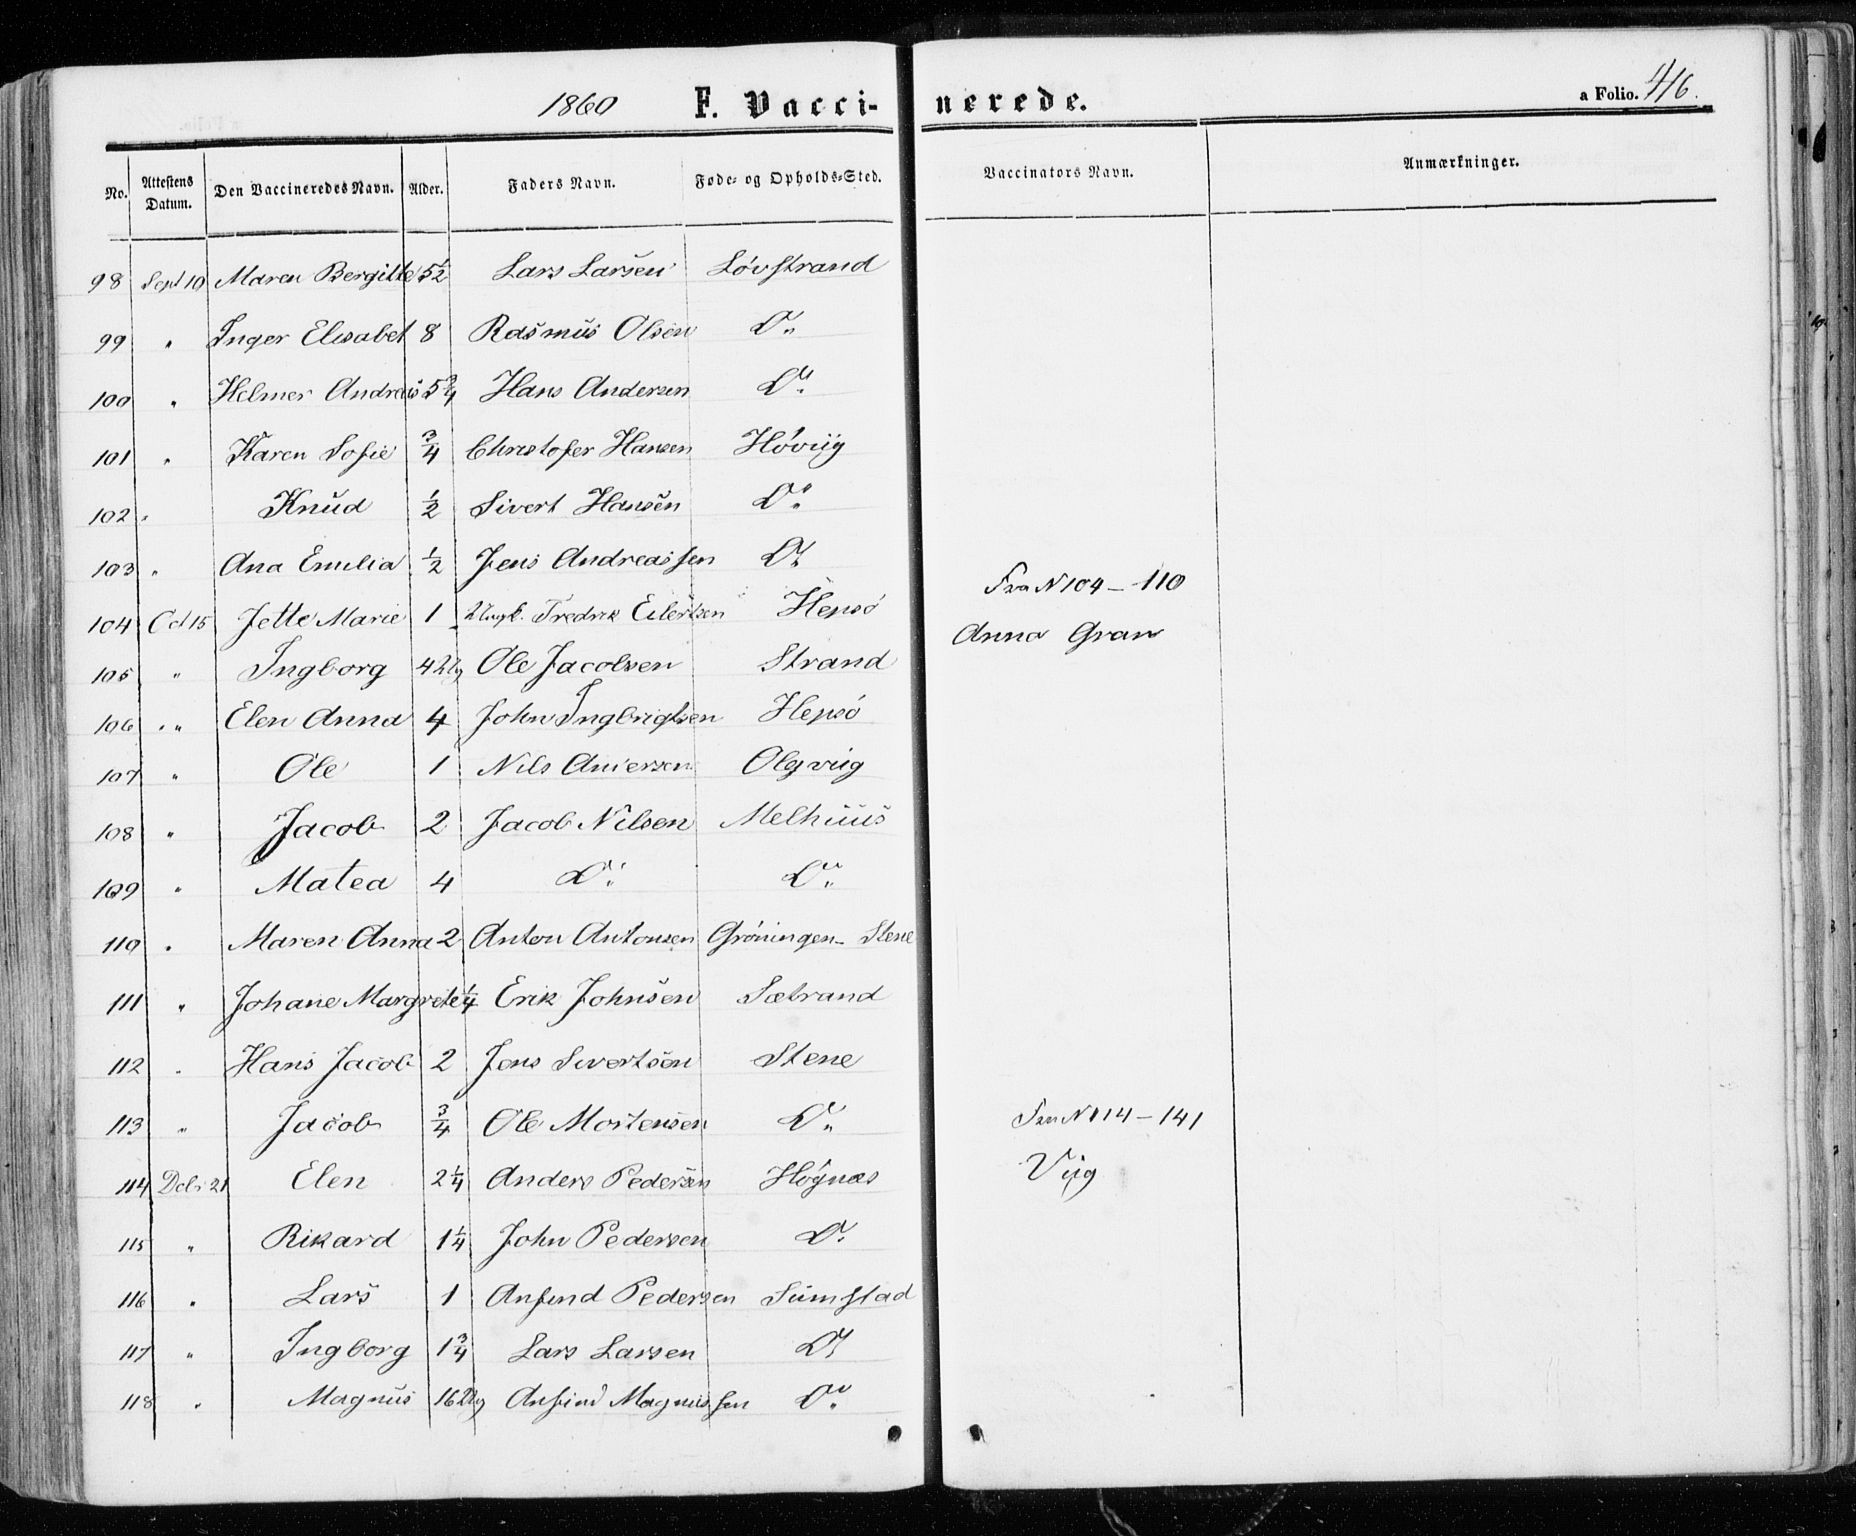 1860 F. Vacci- nerede. a Folio. 416.
No. Attestens Datum. Den Vaccineredes Navn. Alder. Faders Navn. Føde- og Opholds-Sted. Vaccinators Navn. Anmærkninger.
98 Sept 10 Maren Bergitte 5½ Lars Larsen Løvstrand
99 " Inger Elisabet 8 Rasmus Olsen Do
100 " Helmer Andreas 5¾ Hans Andersen Do
101 " Karen Sofie ¾ Christofer Hansen Høviig
102 " Knud ½ Sivert Hansen Do
103 " Ana Emilia ½ Jens Andreassen Do
Fra N 104 – 110
104 Oct 15 Jette Marie 1 Ungk. Fredrik Eilertsen Hepsø
Anna Gran
105 " Ingborg 42 Ug Ole Jacobsen Strand
106 " Elen Anna 4 John Ingbrigtsen Hepsø
107 " Ole 1 Nils Andersen
108 " Jacob 2 Jacob Nilsen Melhuus
109 " Matea 4 Do Do
110 " Maren Anna 2 Anton Antonsen Grøningen – Stene
111 " Johane Margrete ¼ Erik Johnsen Sætrand
112 " Hans Jacob 2 Jens Sivertsen Stene
113 " Jacob ¾ Ole Mortensen Do
Fra N 114 – 141
114 Decbr 21 Elen 2¼ Anders Pedersen Høgnæs
Viig
115 " Rikard 1¼ John Pedersen Do
116 " Lars 1 Anfind Pedersen Sumstad
117 " Ingborg 1¾ Lars Larsen Do
118 " Magnus 16 Ug Anfind Magnussen Do